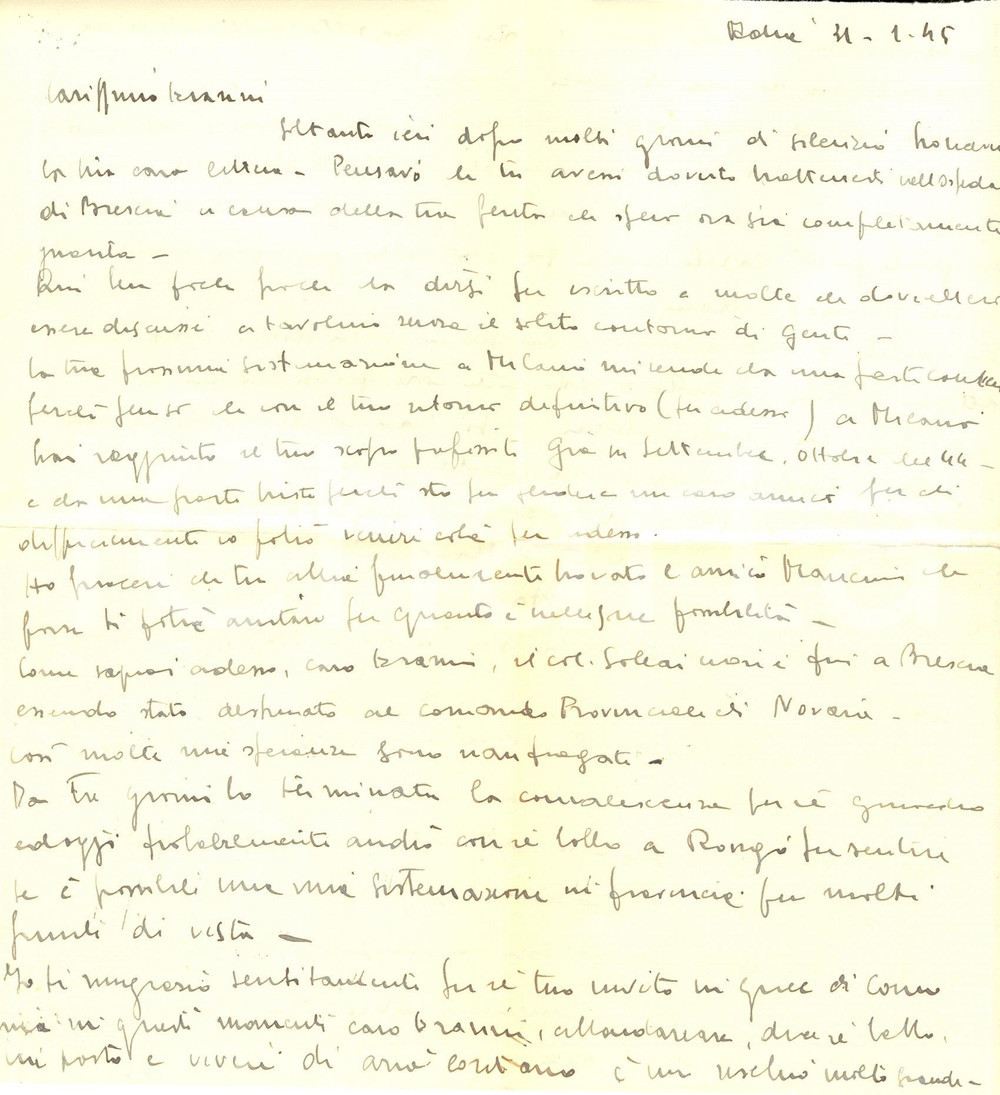 31-1-45
Carissimo Gianni
Soltanto ieri dopo molti giorni di silenzio
la tua cara lettera - Pensavo che tu avessi dovuto trattenerti nell'Ospeda
di Brescia a causa della tua ferita che spero ora sia completamente
guarita -
Qui ben poche da dirsi per iscritto e molte che dovrebbero
essere discusse a tavolino senza il solito contorno di gente -
La tua prossima sistemazione a Milano mi rende da una parte
perché penso che con il tuo ritorno definitivo (per adesso) a Milano
hai raggiunto il tuo scopo prefissoti già in Settembre, Ottobre del 44 -
e da una parte triste perché sto per perdere un caro amico per chi
difficilmente io potrò venire colà per adesso.
Ho piacere che tu abbia finalmente trovato l'amico Mancini che
forse ti potrà aiutare per quanto è nelle sue possibilità -
Come saprai adesso, caro Gianni, il col. non è più a Brescia
essendo stato destinato al comando Provinciale di Novara -
Così molte mie speranze sono naufragate -
Da tre giorni ho terminato la convalescenza per il
ed oggi probabilmente andrò con il babbo a per sentire
se è possibile una mia sistemazione in provincia per molti
punti di vista -
Io ti ringrazio sentitamente per il tuo invito in quel di Como
ma in questi momenti caro Gianni, abbandonare, dice il babbo,
un posto e vivere di aria è un rischio molto grande -